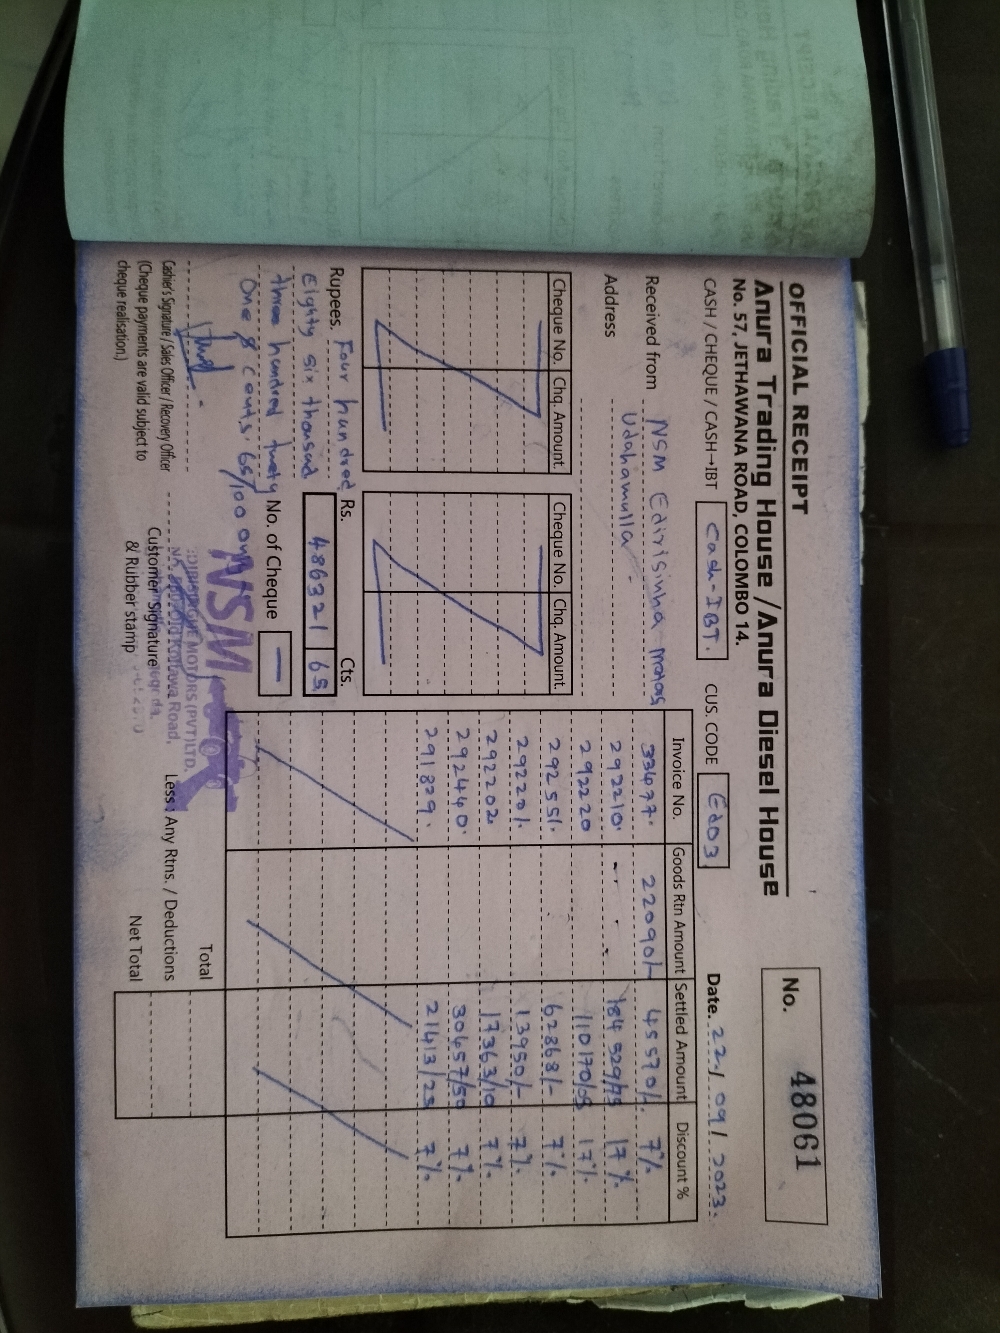 OFFICIAL RECEIPT
Anura Trading House / Anura Diesel House
No. 57, JETHAWANA ROAD, COLOMBO 14.
No. 48061
CASH / CHEQUE / CASH→IBT Cash-IBT. CUS. CODE Ed03 Date. 22/09/2023.
Received from NSM Edirisinha motors
Address Udahamulla
Cheque No. Chq. Amount Cheque No. Chq. Amount
Invoice No. Goods Rtn Amount Settled Amount Discount %
33477. 22090/- 45570/. 7%
292210. 184 529/75 17%
292220 110170/05 17%
292551. 62868/- 7%
292201. 13950/- 7%
292202 17363/10 7%
292440. 30457/50 7%
291829. 21413/25 7%
Rupees. Four hundred
Eighty six thousand
three hundred twety
One & cents. 65/100 only
Rs. Cts.
486321 65
No. of Cheque —
Cashier's Signature / Sales Officer / Recovery Officer
(Cheque payments are valid subject to
cheque realisation.)
NSM
MOTORS (PVT) LTD.
Road,
Customer Signature
& Rubber stamp
Total
Less : Any Rtns. / Deductions
Net Total